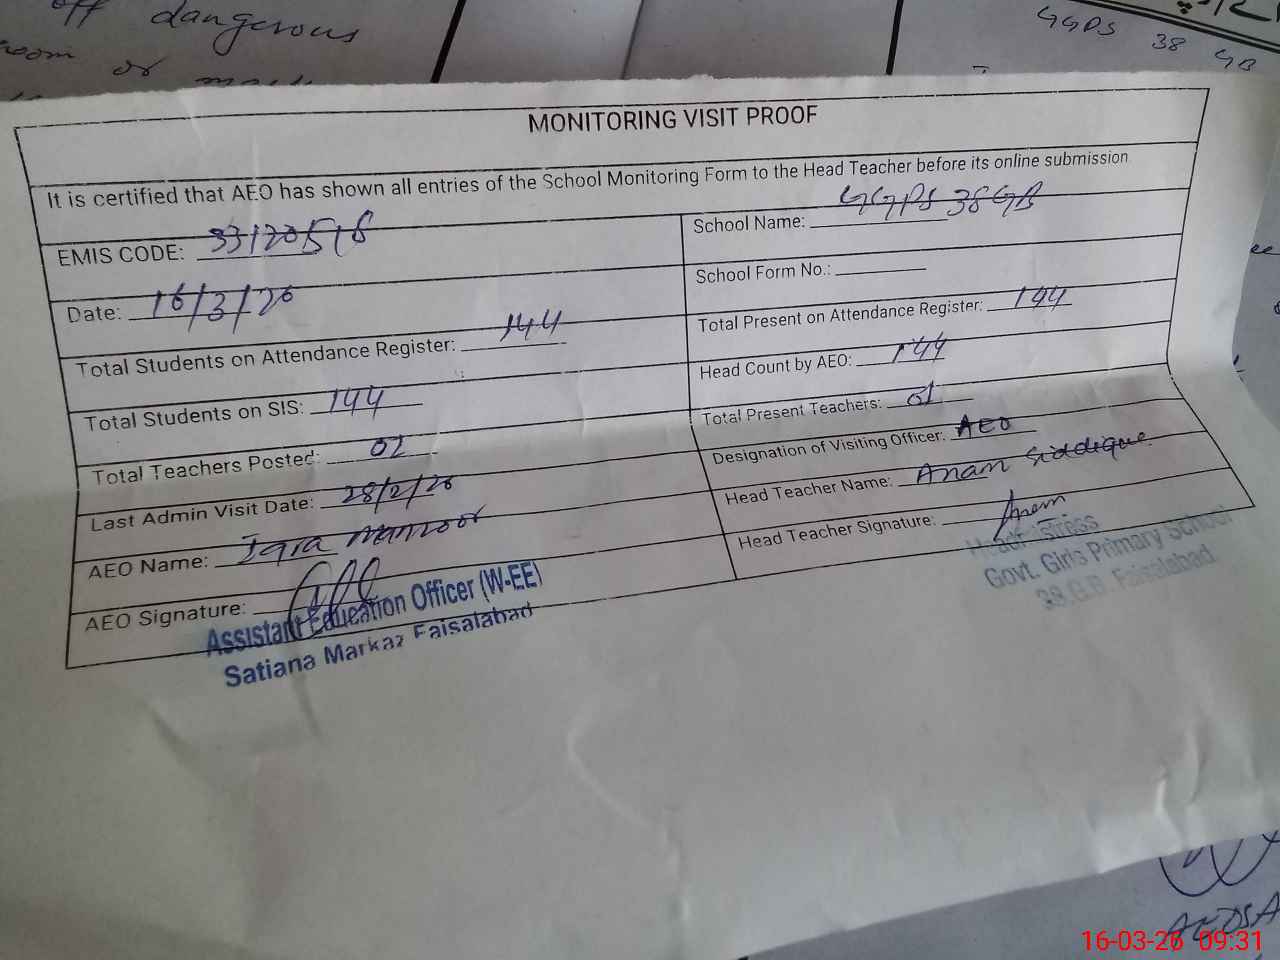 off dangerous
room or
GGPS 38 GB
MONITORING VISIT PROOF
It is certified that AEO has shown all entries of the School Monitoring Form to the Head Teacher before its online submission
EMIS CODE: 33120518
School Name: GGPS 38GB
Date: 16/3/26
School Form No.:
Total Students on Attendance Register: 144
Total Present on Attendance Register: 144
Total Students on SIS: 144
Head Count by AEO: 144
Total Teachers Posted: 02
Total Present Teachers: 01
Last Admin Visit Date: 28/2/26
Designation of Visiting Officer: AEO
AEO Name: Iqra Manzoor
Head Teacher Name: Anam Siddique
AEO Signature:
Head Teacher Signature: Anam
Assistant Education Officer (W-EE)
Satiana Markaz Faisalabad
Headmistress
Govt. Girls Primary School
38.G.B. Faisalabad
16-03-26 09:31